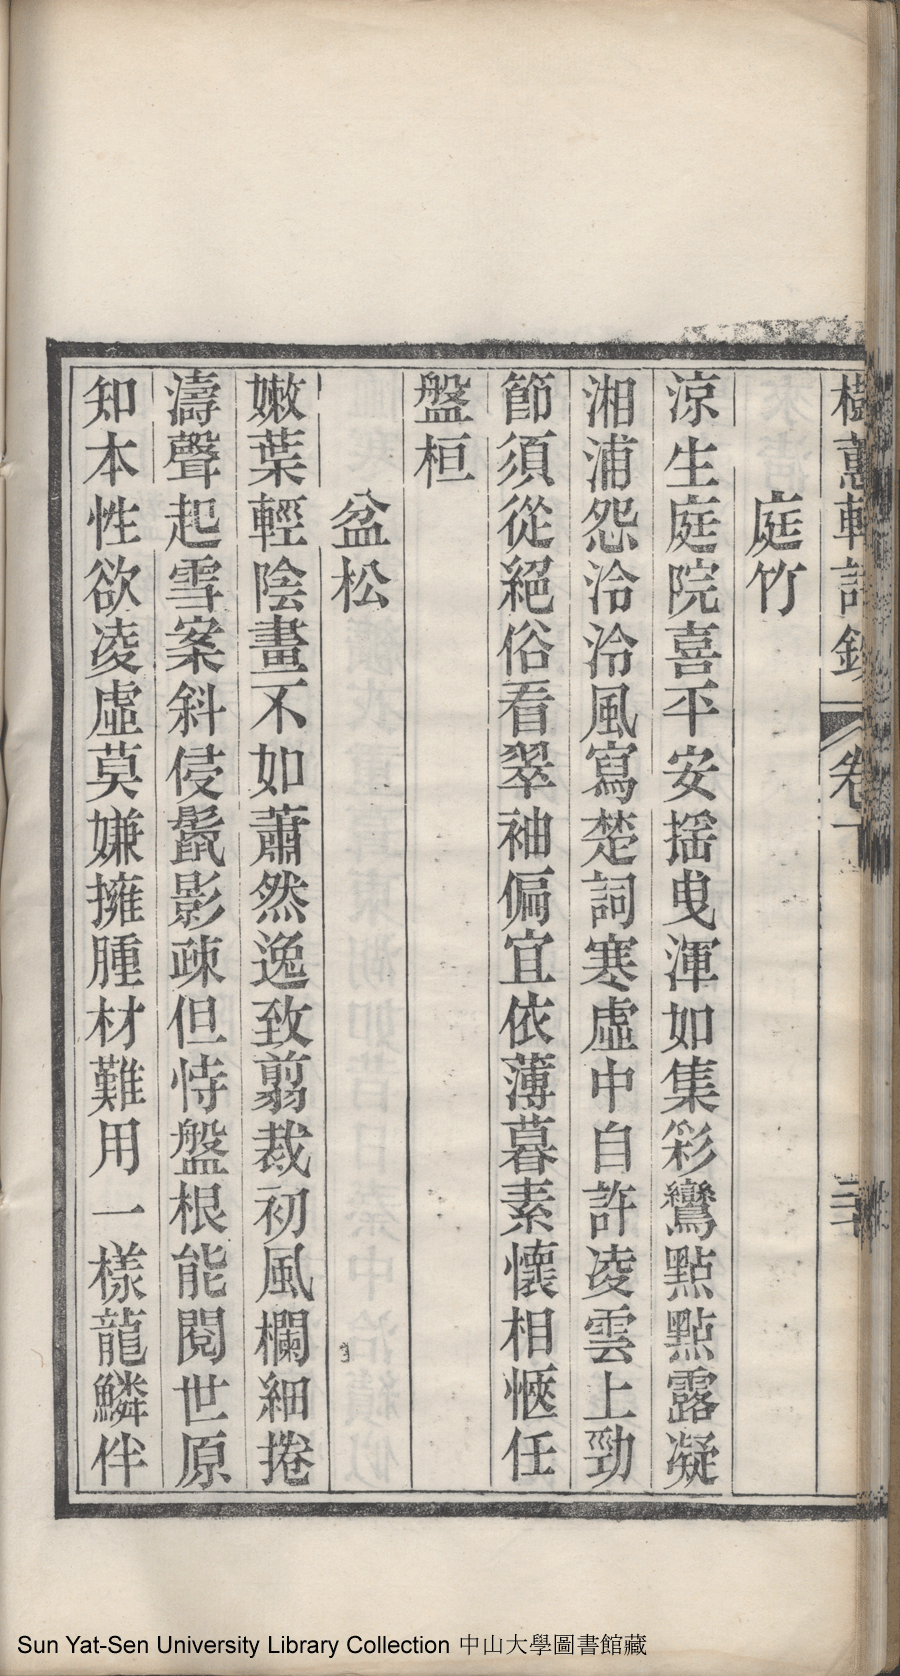 樹蕙軒詩鈔 卷下 二十
庭竹
涼生庭院喜平安揺曳渾如集彩鸞點點露凝
湘浦怨泠泠風寫楚詞寒虛中自許凌雲上勁
節須從絕俗看翠袖偏宜依薄暮素懷相愜任
盤桓
盆松
嫩葉輕陰畫不如蕭然逸致翦裁初風欄細捲
濤聲起雪案斜侵鬣影疎但恃盤根能閱世原
知本性欲凌虛莫嫌擁腫材難用一樣龍鱗伴
Sun Yat-Sen University Library Collection 中山大學圖書館藏